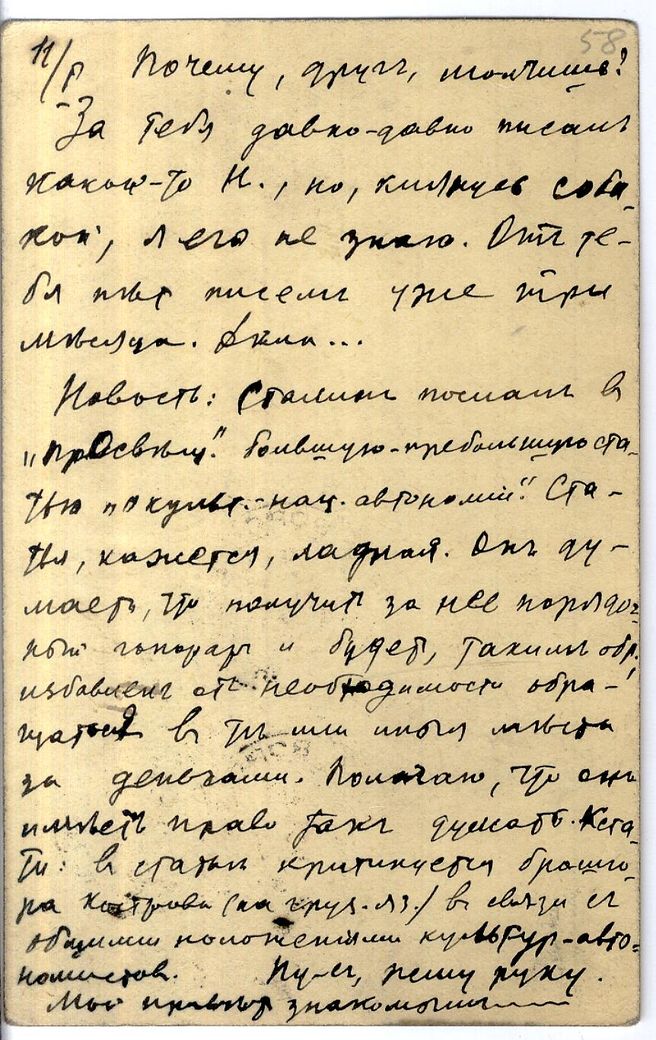 58
11/р Почему, другъ, молчишь?
За тебя давно-давно писалъ
какой-то Н., но, клянусь соба-
кой, я его не знаю. Отъ те-
бя нѣт писемъ уже три
мѣсяца. Дѣла...
Новость: Сталинъ послалъ в
„Просвѣщ." большую-пребольшую ста-
тью „о культ.-нац. автономіи". Ста-
тья, кажется, ладная. Онъ ду-
маетъ, что получитъ за нее порядоч-
ный гонораръ и будет, такимъ обр.
избавленъ отъ необходимости обра-
щаться въ тѣ или иныя мѣста
за деньгами. Полагаю, что онъ
имѣетъ право такъ думать. Кста-
ти: в статьѣ критикуется брошю-
ра Кострова (на груз. яз.) въ связи съ
общими положеніями культур-авто-
номистов. Ну-съ, жму руку.
Мой привѣт знакомымъ